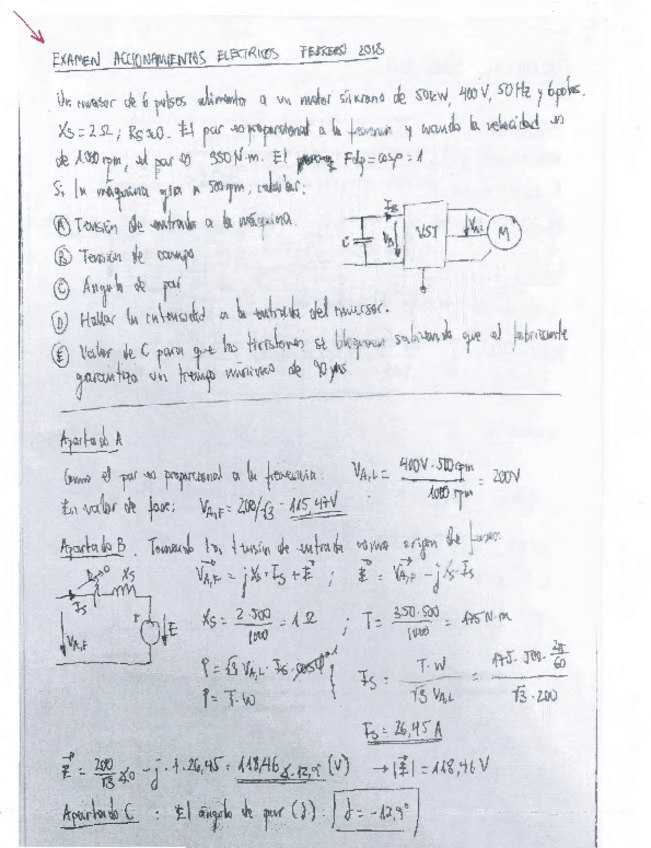 EXAMEN ACCIONAMIENTOS ELECTRICOS FEBRERO 2013
Un inversor de 6 pulsos alimenta a un motor síncrono de 50kW, 400V, 50Hz y 6polos.
Xs=2Ω; Rs≈0. El par es proporcional a la frecuencia y cuando la velocidad es
de 1000 rpm, el par es 350N·m. El Fdp=cosφ=1
Si la máquina gira a 500rpm, calcular:
A Tensión de entrada a la máquina.
B Tensión de campo
C Ángulo de par
D Hallar la intensidad a la entrada del inversor.
E Valor de C para que los tiristores se bloqueen sabiendo que el fabricante
garantiza un tiempo mínimo de 90μs
C VST M
Apartado A
Como el par es proporcional a la frecuencia: VA,L = 400V·500rpm / 1000 rpm = 200V
En valor de fase: VA,F = 200/√3 = 115,47V
Apartado B. Tomando la tensión de entrada como origen de fases:
VA,F = j Xs·Is + E ; E = VA,F - j Xs·Is
Xs Is VA,F E
Xs = 2·500 / 1000 = 1Ω ; T = 350·500 / 1000 = 175N·m
P = √3 VA,L·Is·cosφ
P = T·W
Is = T·W / √3 VA,L = 175·500·2π/60 / √3·200
Is = 26,45 A
E = 200/√3 ∡0 - j·1·26,45 = 118,46 ∡-12,9° (V) → |E| = 118,46 V
Apartado C : El ángulo de par (δ): δ = -12,9°